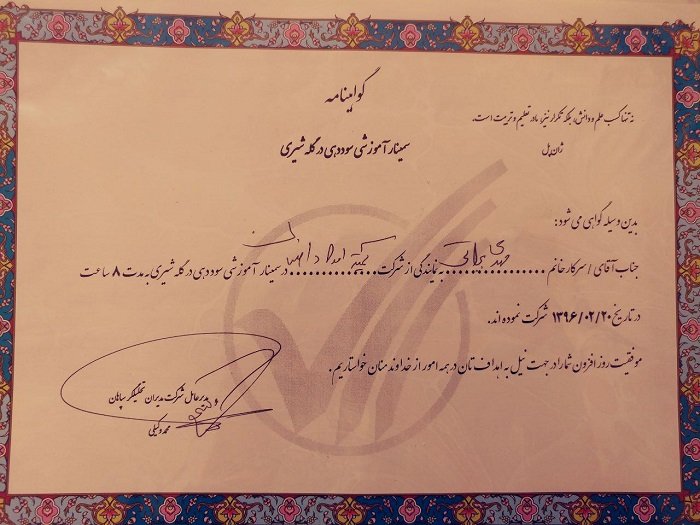 گواهینامه
نه تنها کسب علم و دانش، بلکه تکرار نیز، مادر تعلیم و تربیت است.
ژان پل
سمینار آموزشی سوددهی در گله شیری
بدین وسیله گواهی می شود :
جناب آقای / سرکار خانم ................ به نمایندگی از شرکت ................ در سمینار آموزشی سوددهی در گله شیری به مدت ۸ ساعت
در تاریخ ۱۳۹۶/۰۲/۲۰ شرکت نموده اند.
موفقیت روز افزون شما را در جهت نیل به اهداف تان در همه امور از خداوند منان خواستاریم.
مدیر عامل شرکت مدیران تحلیلگر سپاهان
محمد وکیلی